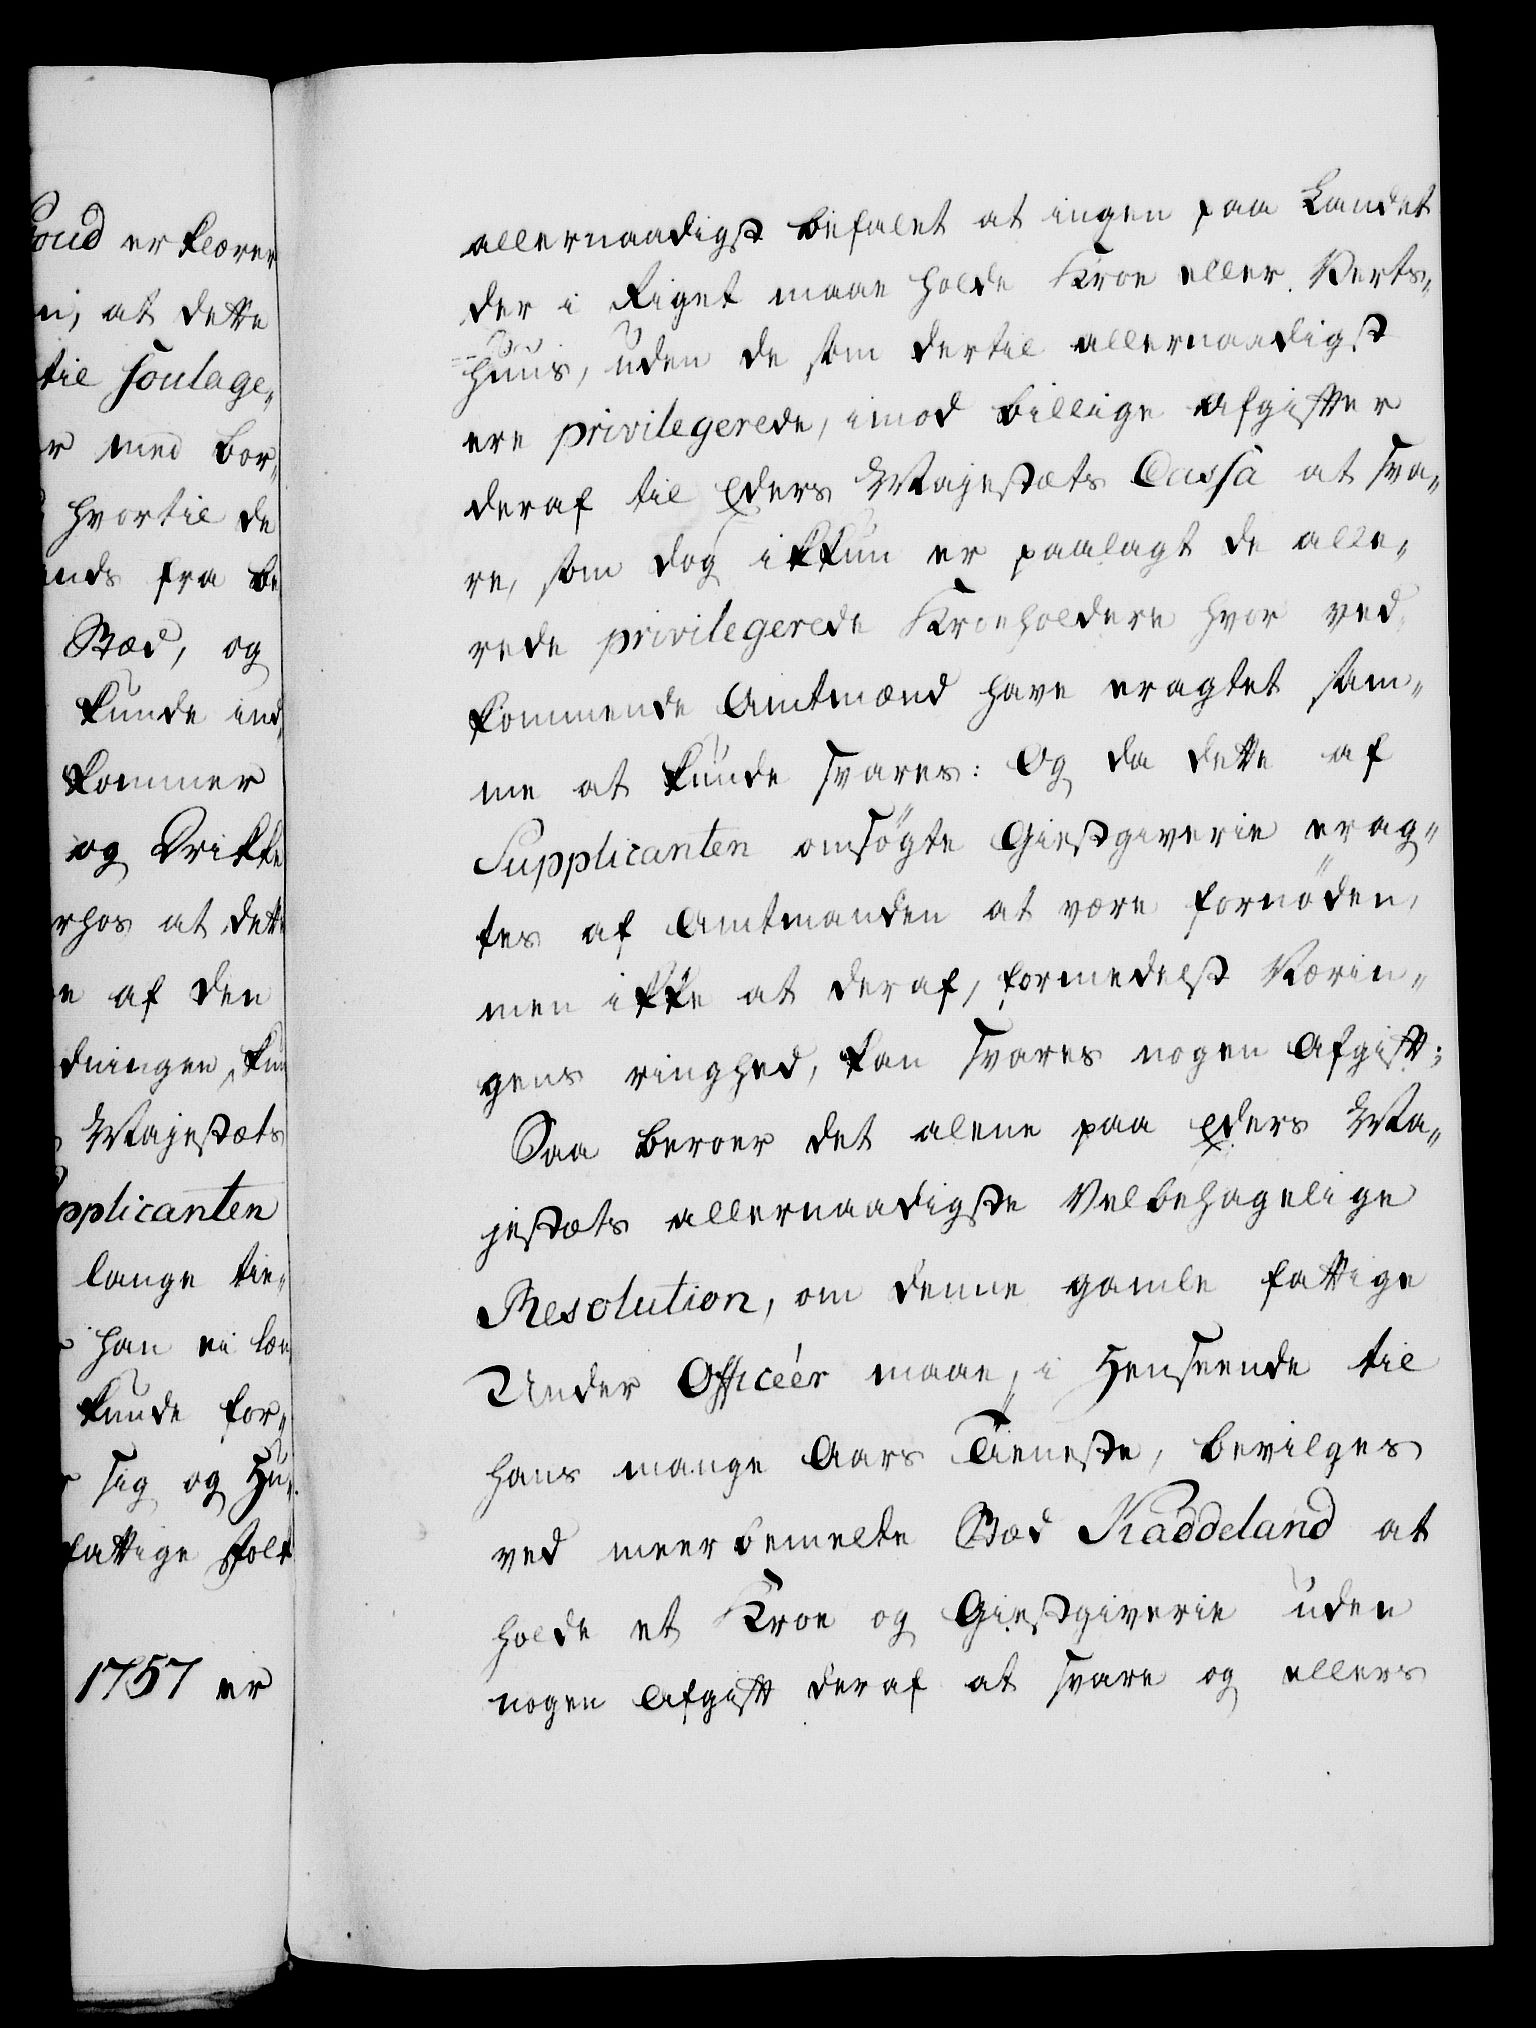 oud erklærer
i, at dette
til soulage„
r med bor„
hvortil de
nds fra be
Stæd, og
kunde ind„
kommer
og Drikke
rhos at dette
e af den
dningen, kun
Majestæts
pplicanten
lange tie„
han ei læn
kunde for„
sig og Hu„
fattige Folk
1757 er
allernaadigst befalet at ingen paa Landet
der i Riget maae holde Kroe eller Verts„
huus, uden de som dertil allernaadigst
ere privilegerede, imod billige Afgifter
deraf til Eders Majestæts Cassa at sva„
re, som dog ikkun er paalagt de alle„
rede privilegerede Kroeholdere hvor ved„
kommende Amtmænd have eragtet sam„
me at kunde svares: Og da dette af
Supplicanten omsögte Giestgiverie erag„
tes af Amtmanden at være fornöden,
men ikke at deraf, formedelst Nærin„
gens ringhed, kan svares nogen Afgift;
Saa beroer det alene paa Eders Ma„
jestæts allernaadigste Velbehagelige
Resolution, om denne gamle fattige
Under Officeér maae, i Henseende til
hans mange Aars Tieneste, bevilges
ved meerbemelte Stæd Kaddeland at
holde et Kroe og Giestgiverie uden
nogen Afgift deraf at svare og ellers